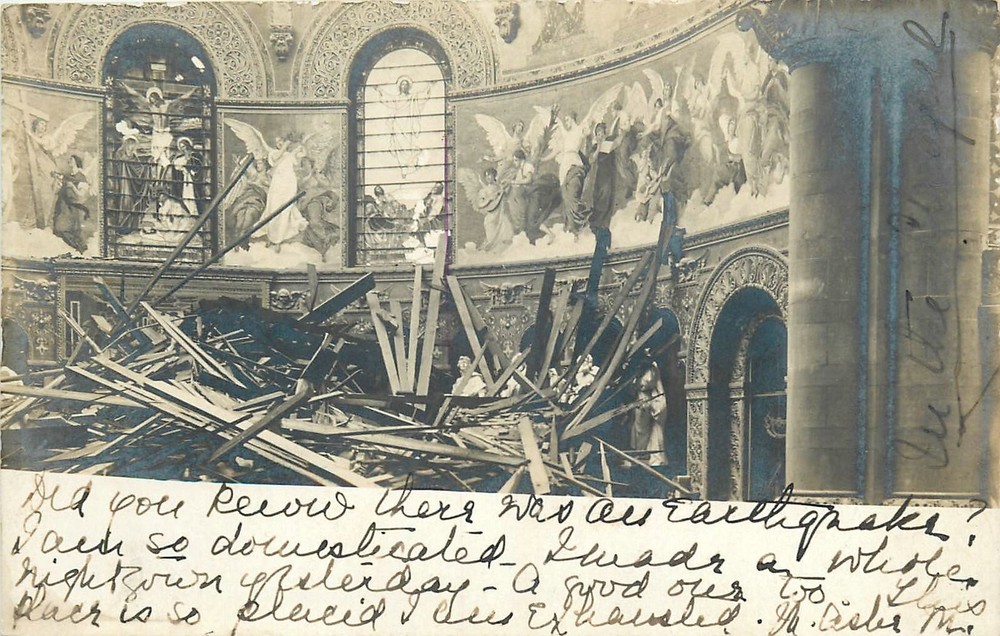 Did you know there was an Earthquake?
I am so domesticated - I made a whole
nightgown yesterday - A good one too This
place is so placid I am Exhausted.
In the